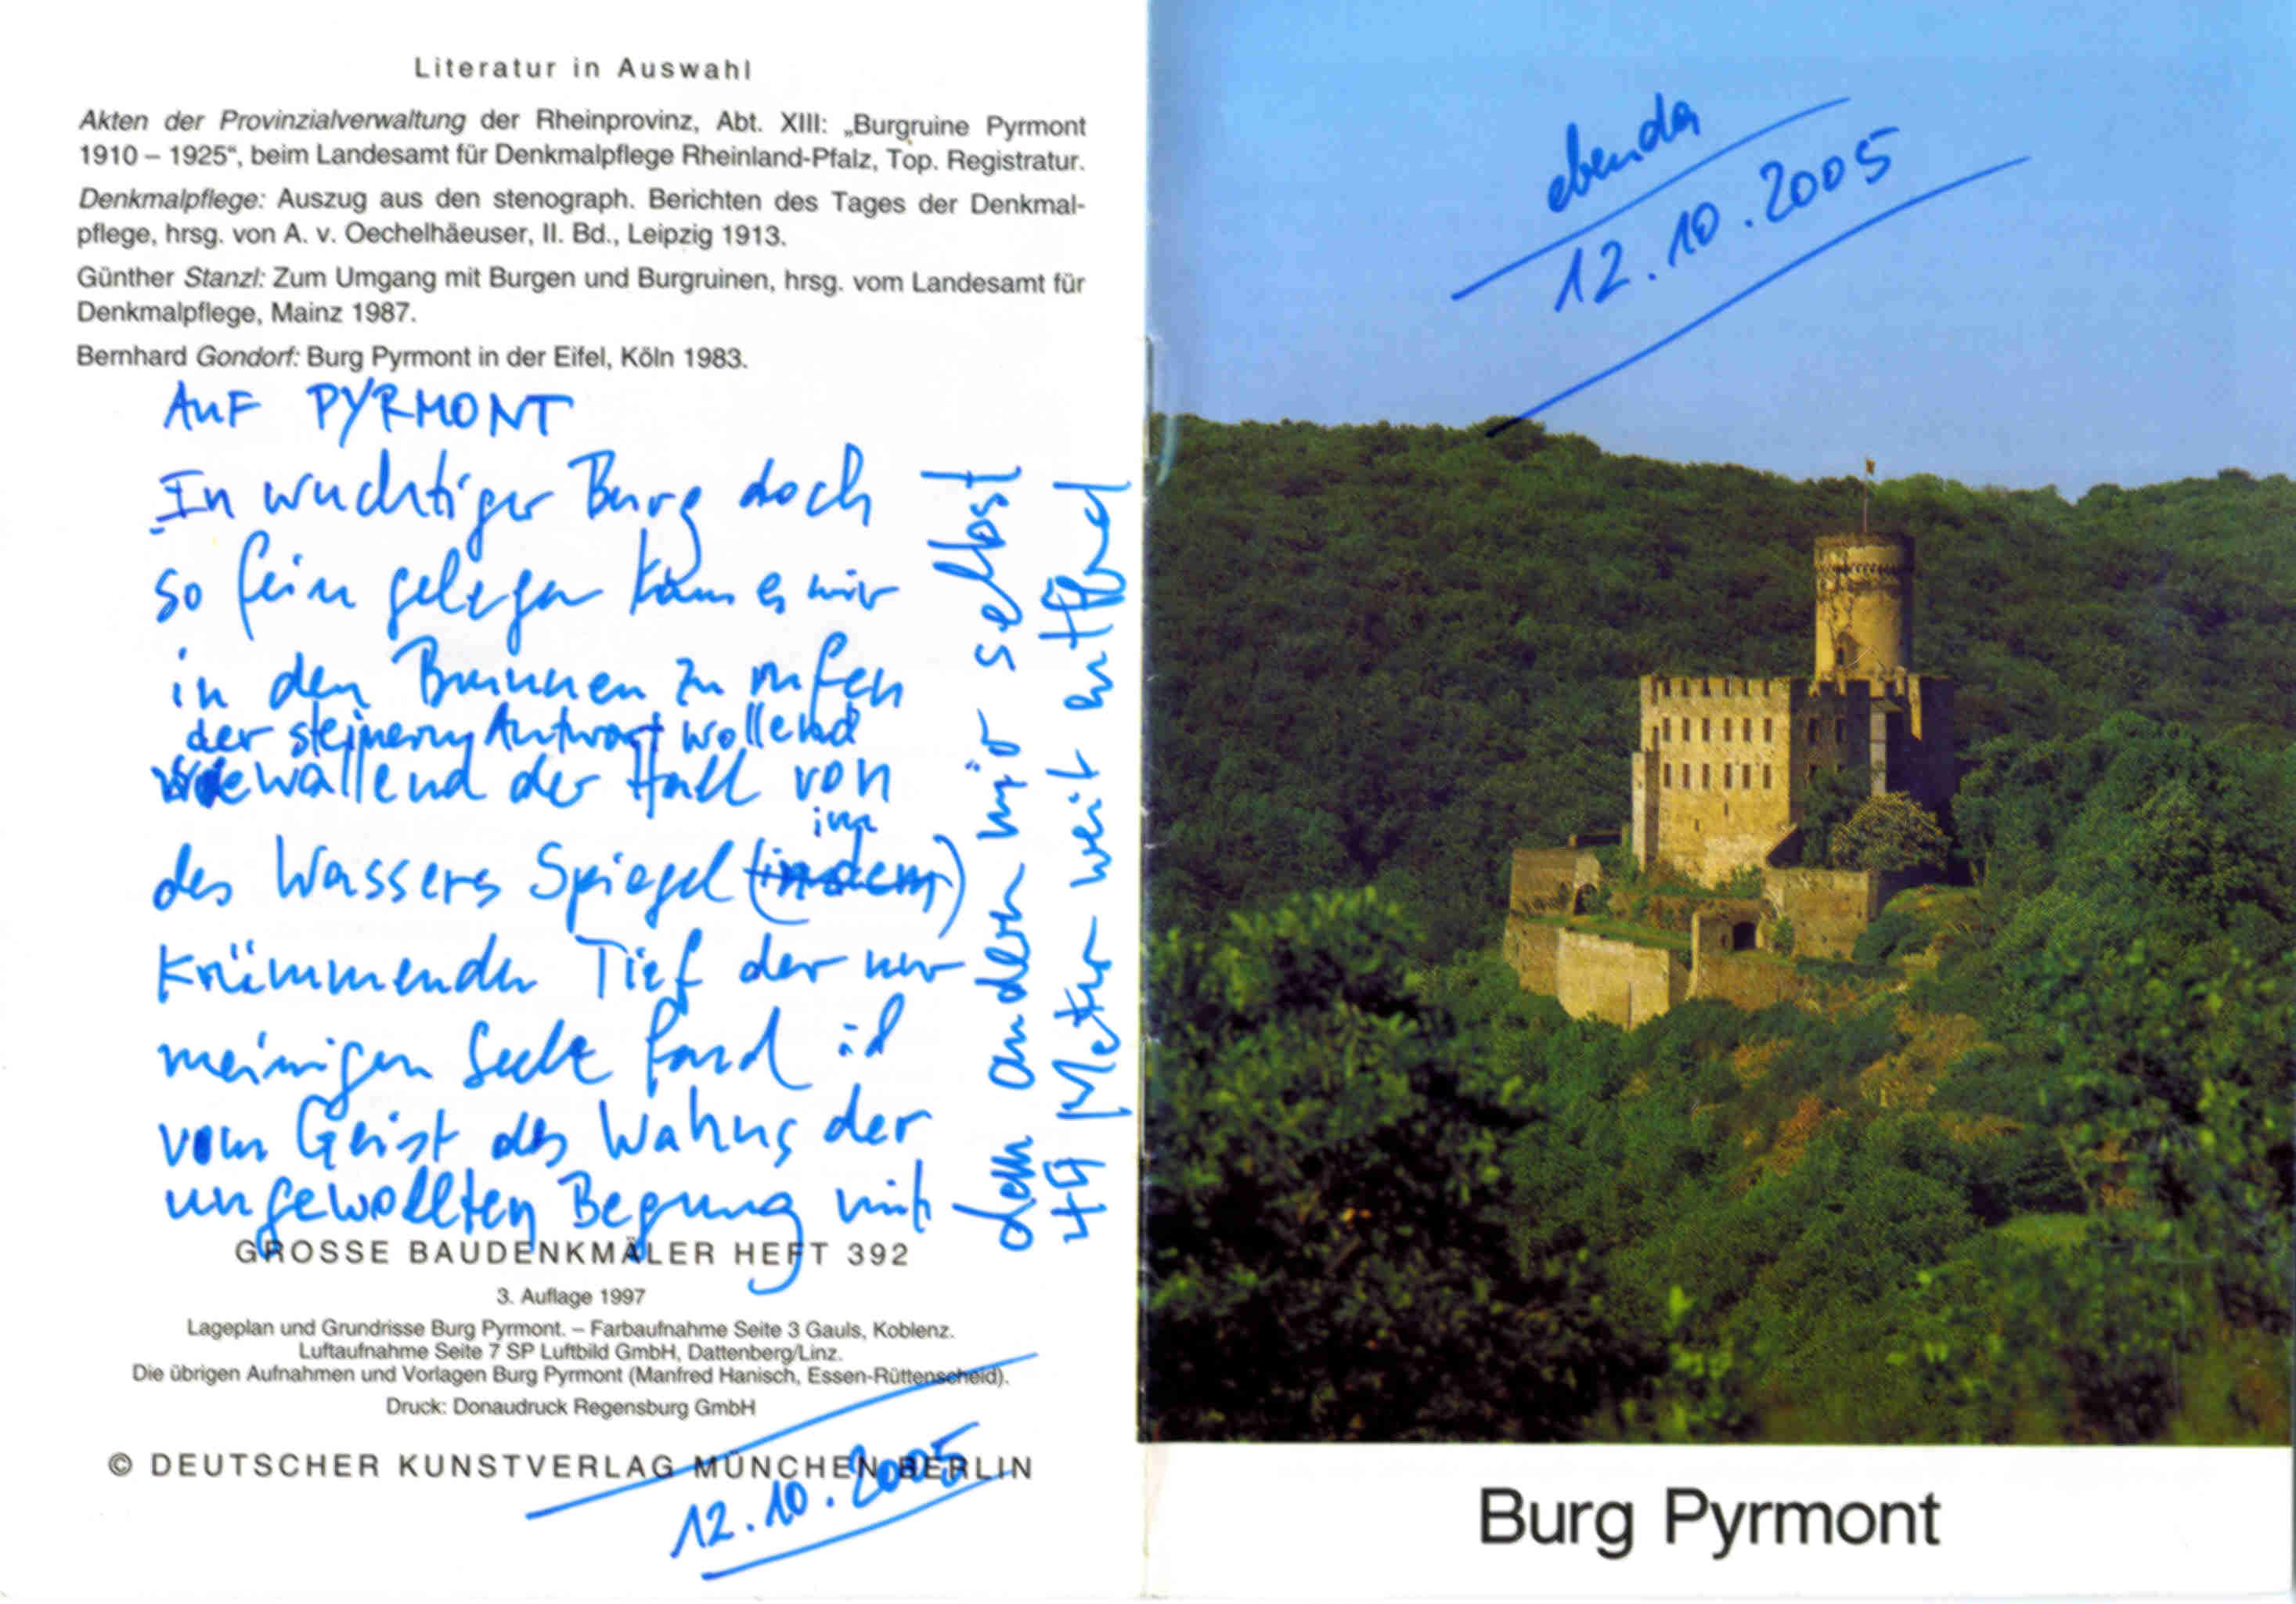 Literatur in Auswahl
Akten der Provinzialverwaltung der Rheinprovinz, Abt. XIII: „Burgruine Pyrmont
1910 – 1925“, beim Landesamt für Denkmalpflege Rheinland-Pfalz, Top. Registratur.
Denkmalpflege: Auszug aus den stenograph. Berichten des Tages der Denkmal-
pflege, hrsg. von A. v. Oechelhäeuser, II. Bd., Leipzig 1913.
Günther Stanzl: Zum Umgang mit Burgen und Burgruinen, hrsg. vom Landesamt für
Denkmalpflege, Mainz 1987.
Bernhard Gondorf: Burg Pyrmont in der Eifel, Köln 1983.
AUF PYRMONT
In wuchtiger Burg doch
so fein gelegen kam es mir
in den Brunnen zu rufen
der steinern Antwort wollend
wallend der Hall von
des Wassers Spiegel (indem)
im
krümmender Tief der nur
meinigen Seele fand ich
vom Geist des Wahns der
ungewollten Begegnung mit
dem andern mir selbst
44 Meter weit entfernt
GROSSE BAUDENKMÄLER HEFT 392
3. Auflage 1997
Lageplan und Grundrisse Burg Pyrmont. – Farbaufnahme Seite 3 Gauls, Koblenz.
Luftaufnahme Seite 7 SP Luftbild GmbH, Dattenberg/Linz.
Die übrigen Aufnahmen und Vorlagen Burg Pyrmont (Manfred Hanisch, Essen-Rüttenscheid).
Druck: Donaudruck Regensburg GmbH
© DEUTSCHER KUNSTVERLAG MÜNCHEN BERLIN
12.10.2005
ebenda
12.10.2005
Burg Pyrmont